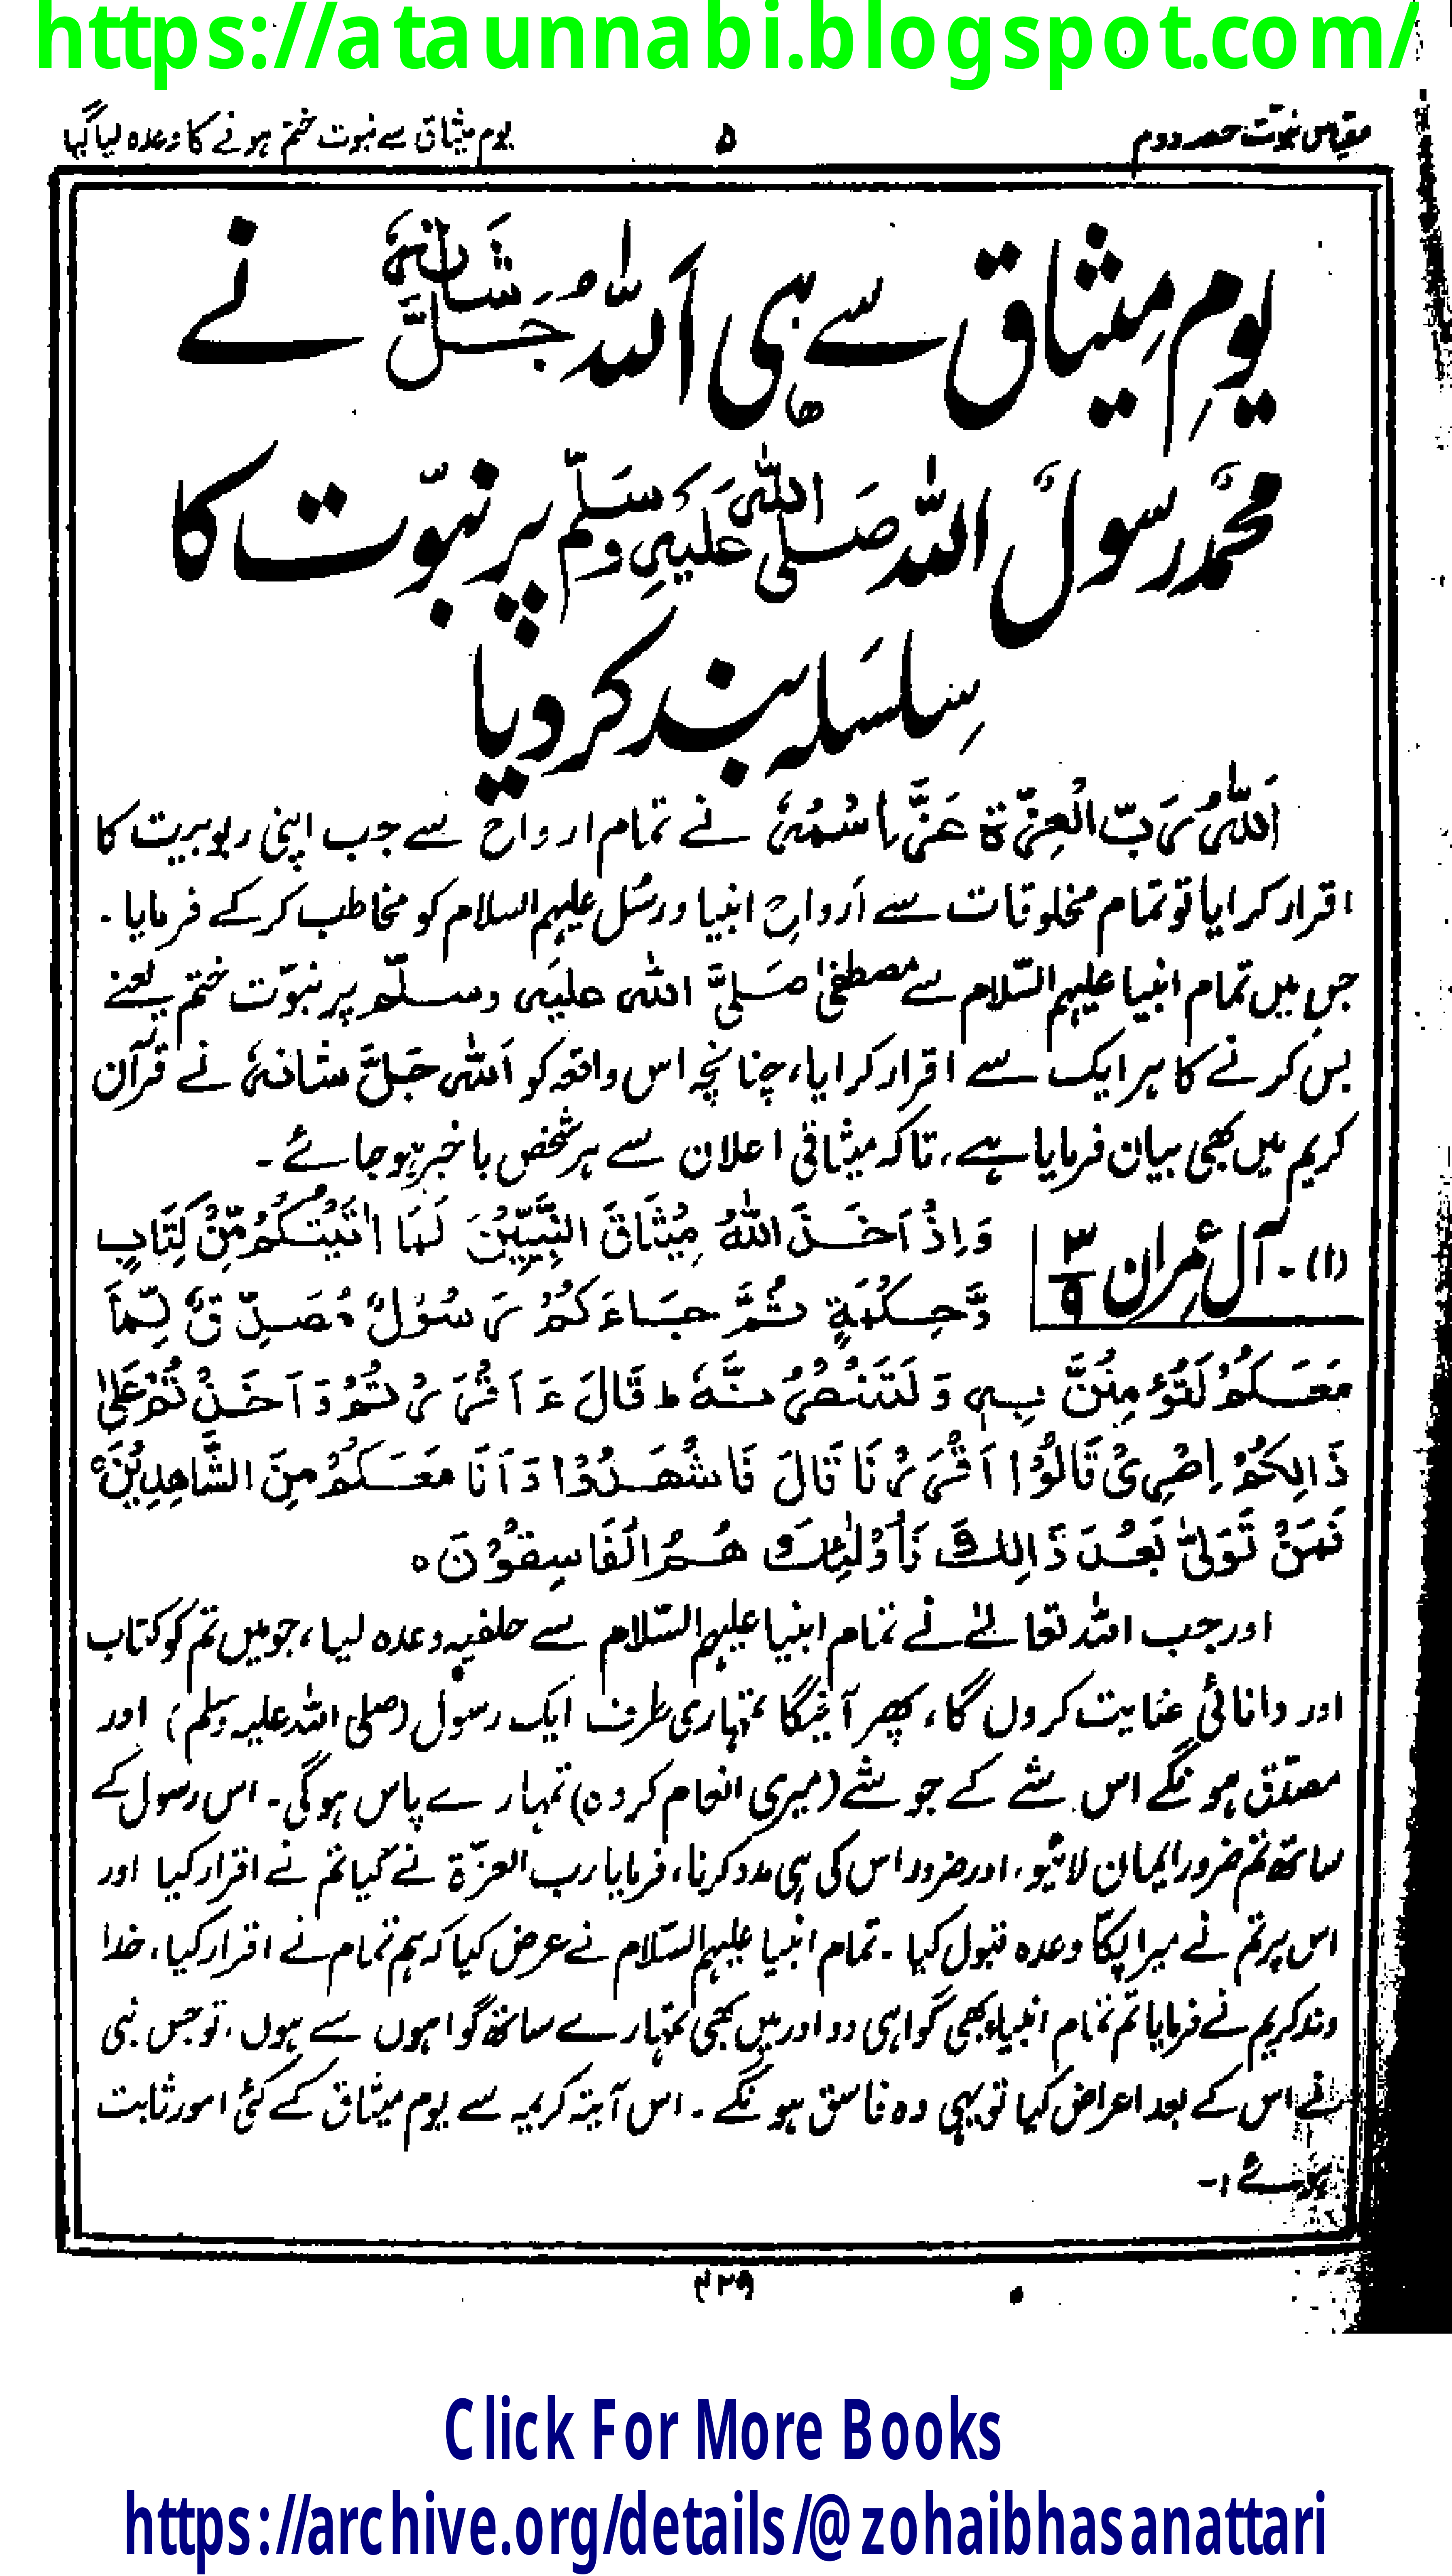 https://ataunnabi.blogspot.com/
مقیاس نبوّت حصہ دوم ۵ یوم میثاق سے نبوت ختم ہونے کا وعدہ لیا گیا
یومِ میثاق سے ہی اَللّٰہُ جَلَّ شَانُہٗ نے
محمّدٌ رسولُ اللہ صَلَّی اللہُ عَلَیْہِ وَسَلَّمَ پر نبوّت کا
سِلسلہ بند کر دیا
اَللّٰہُ رَبُّ الْعِزَّۃِ عَزَّ اسْمُہٗ نے تمام ارواح سے جب اپنی ربوبیت کا
اقرار کرایا تو تمام مخلوقات سے اَرواحِ انبیا و رسُل علیہم السلام کو مخاطب کر کے فرمایا ۔
جس میں تمام انبیا علیہم السّلام سے مصطفیٰ صَلَّی اللہ علیہ وسلّم پر نبوّت ختم یعنے
بس کرنے کا ہر ایک سے اقرار کرایا، چنانچہ اس واقعہ کو اَللہ جَلَّ شانہٗ نے قرآن
کریم میں بھی بیان فرمایا ہے، تاکہ میثاقی اعلان سے ہر شخص باخبر ہو جائے ۔
(۱)۔ آلِ عمران ۳/۹ وَاِذْ اَخَذَ اللہُ مِیْثَاقَ النَّبِیِّیْنَ لَمَا اٰتَیْتُکُمْ مِّنْ کِتَابٍ
وَّحِکْمَۃٍ ثُمَّ جَاءَ کُمْ رَسُوْلٌ مُصَدِّقٌ لِّمَا
مَعَکُمْ لَتُؤْمِنُنَّ بِہٖ وَ لَتَنْصُرُنَّہٗ ط قَالَ ءَ اَقْرَرْتُمْ وَ اَخَذْتُمْ عَلیٰ
ذَالِکُمْ اِصْرِیْ قَالُوْا اَقْرَرْنَا قَالَ فَاشْهَدُوْا وَ اَنَا مَعَکُمْ مِنَ الشَّاهِدِیْنَ ہ
فَمَنْ تَوَلّیٰ بَعْدَ ذَالِکَ فَاُوْلٰئِکَ هُمُ الْفَاسِقُوْنَ ہ
اور جب اللہ تعالےٰ نے تمام انبیا علیہم السّلام سے حلفیہ وعدہ لیا، جو میں تم کو کتاب
اور دانائی عنایت کروں گا، پھر آئیگا تمہاری طرف ایک رسول (صلی اللہ علیہ وسلم) اور
مصدّق ہونگے اس شے کے جو شے (میری انعام کردہ) تمہارے پاس ہو گی ۔ اس رسول کے
ساتھ تم ضرور ایمان لائیو، اور ضرور اس کی ہی مدد کرنا، فرمایا رب العزّۃ نے کیا تم نے اقرار کیا اور
اس پر تم نے میرا پکّا وعدہ قبول کیا ۔ تمام انبیا علیہم السّلام نے عرض کیا کہ ہم تمام نے اقرار کیا، خدا
وند کریم نے فرمایا تم تمام انبیاء بھی گواہی دو اور میں بھی تمہارے ساتھ گواہوں سے ہوں، تو جس نبی
نے اس کے بعد اعراض کیا تو یہی وہ فاسق ہونگے ۔ اس آیتہ کریمہ سے یوم میثاق کے کئی امور ثابت
ہوئے :۔
۴۲۹
Click For More Books
https://archive.org/details/@zohaibhasanattari